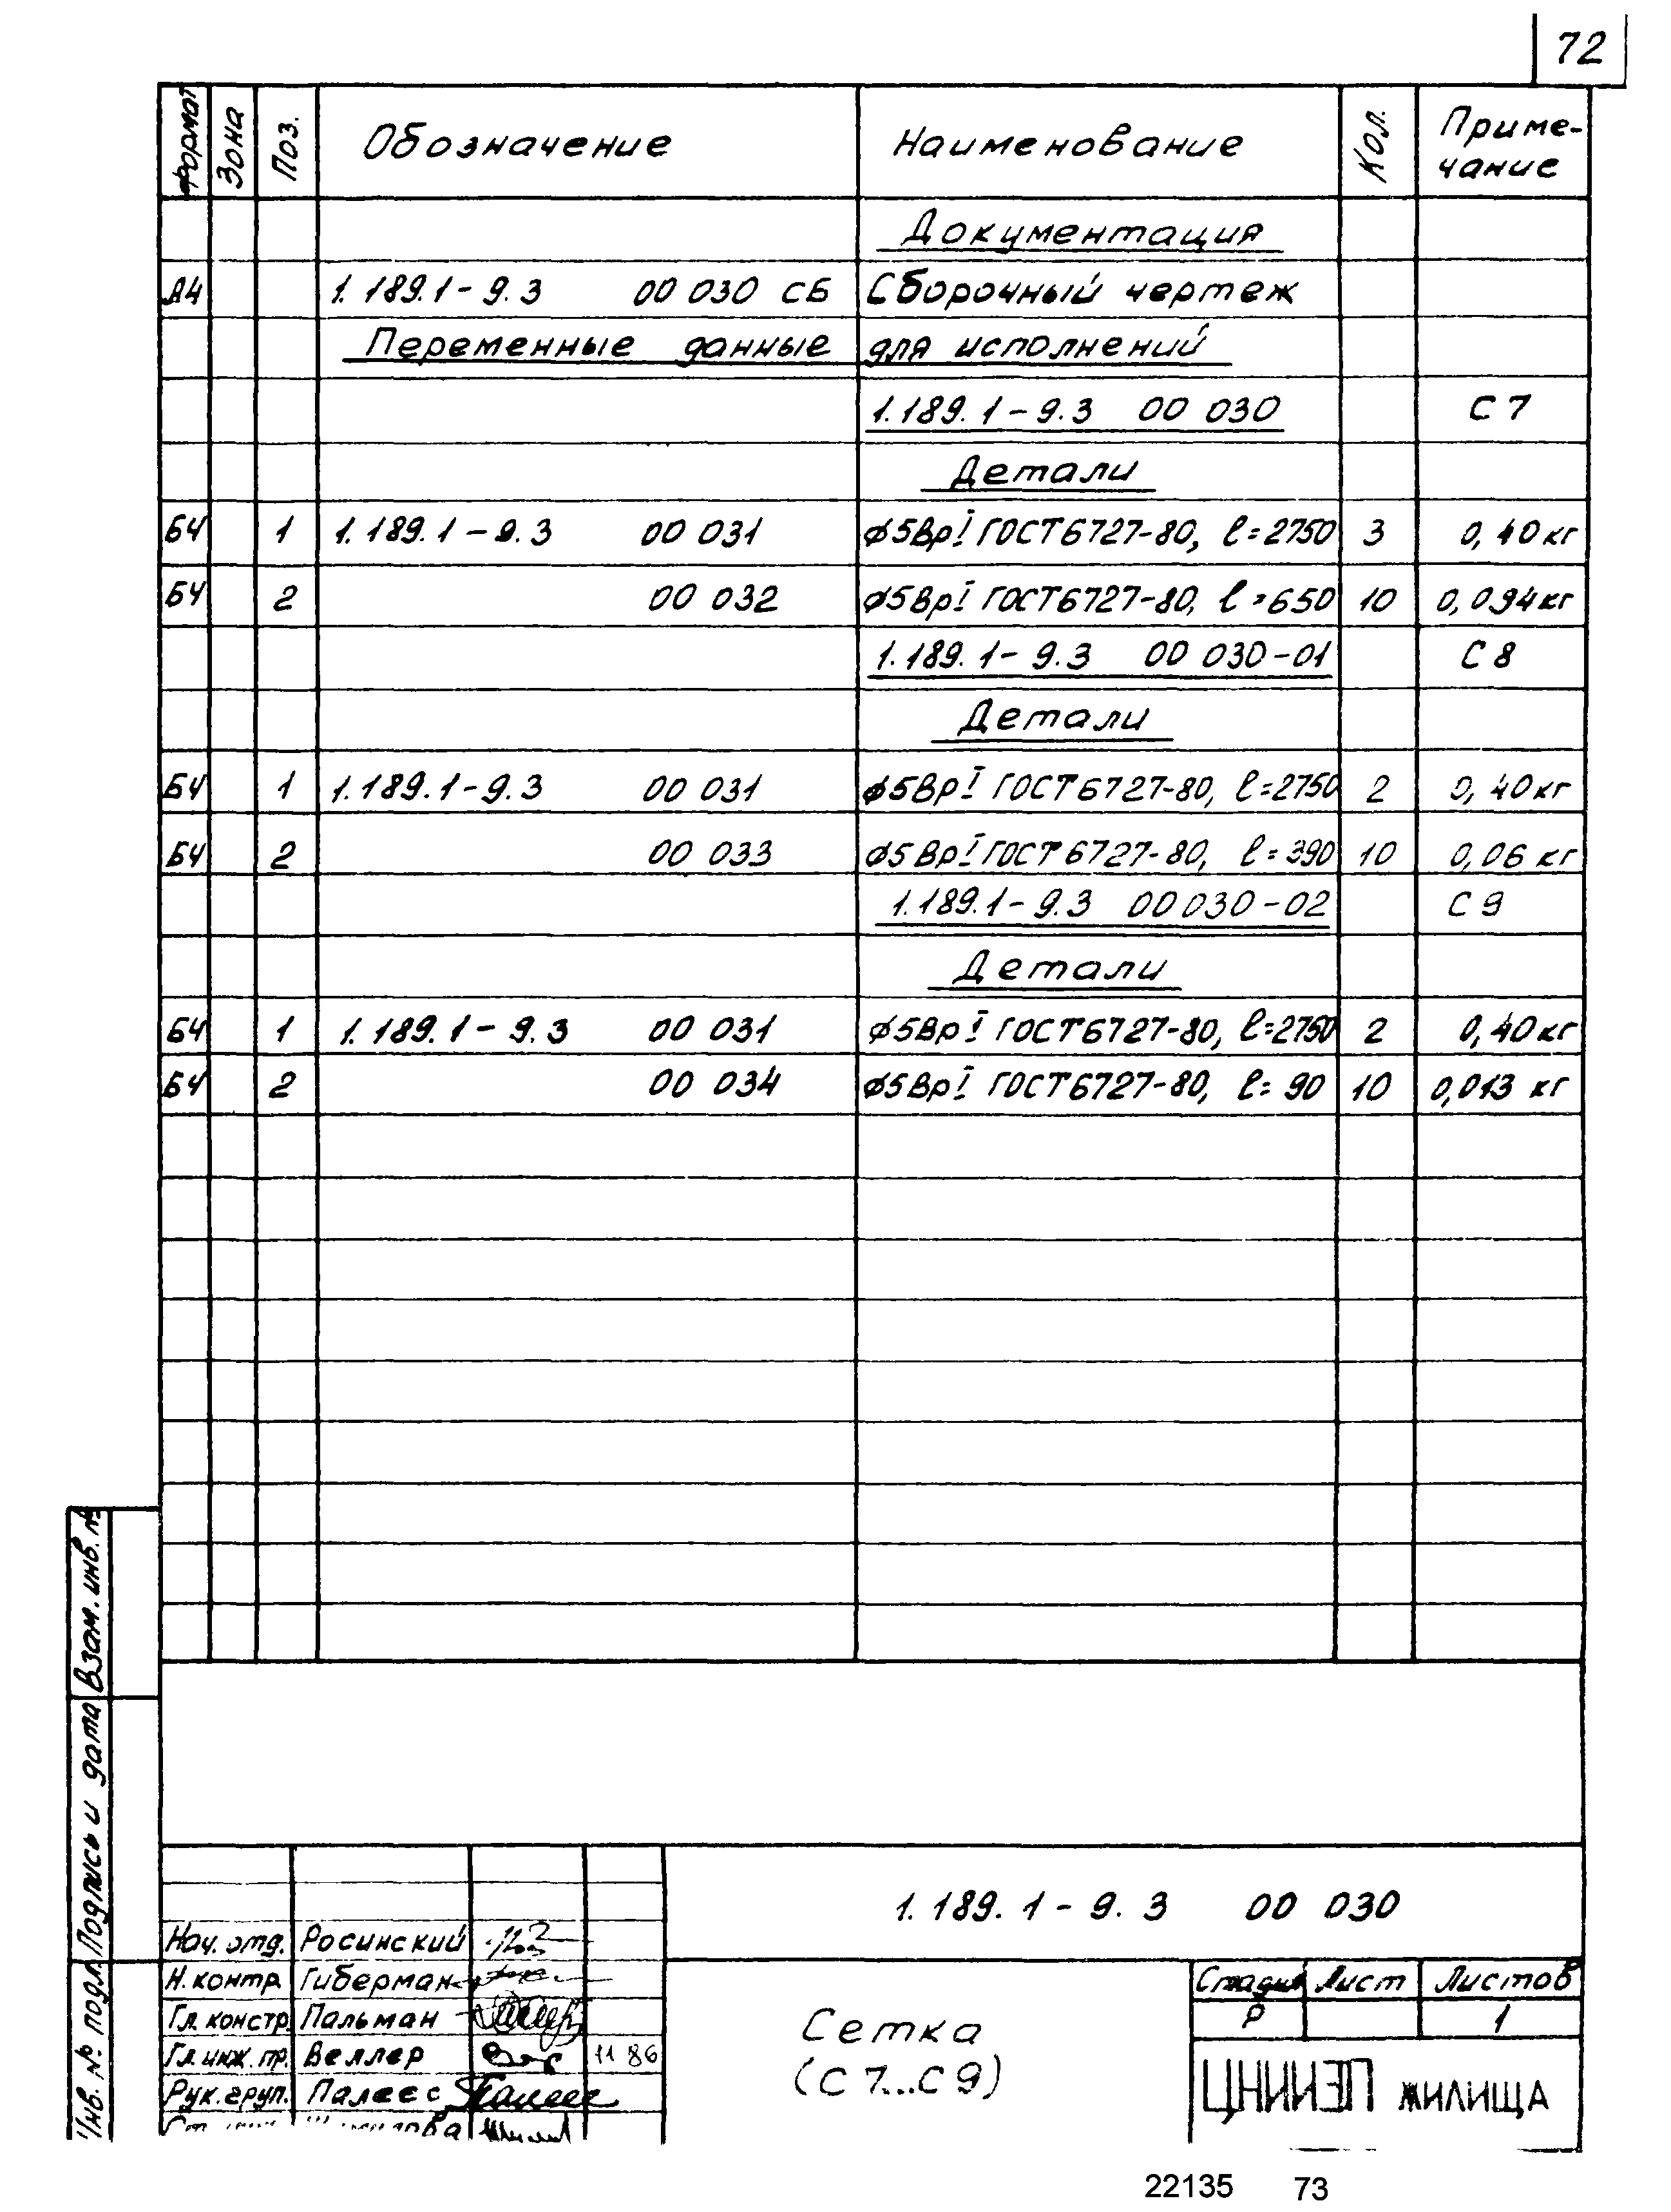 72
Формат Зона Поз. Обозначение Наименование Кол. Приме-
чание
Документация
А4 1.189.1-9.3 00 030 СБ Сборочный чертеж
Переменные данные для исполнений
1.189.1-9.3 00 030 С7
Детали
БЧ 1 1.189.1-9.3 00 031 ⌀5ВрI ГОСТ6727-80, ℓ=2750 3 0,40кг
БЧ 2 00 032 ⌀5ВрI ГОСТ6727-80, ℓ=650 10 0,094кг
1.189.1-9.3 00 030-01 С8
Детали
БЧ 1 1.189.1-9.3 00 031 ⌀5ВрI ГОСТ6727-80, ℓ=2750 2 0,40кг
БЧ 2 00 033 ⌀5ВрI ГОСТ6727-80, ℓ=390 10 0,06 кг
1.189.1-9.3 00 030-02 С9
Детали
БЧ 1 1.189.1-9.3 00 031 ⌀5ВрI ГОСТ6727-80, ℓ=2750 2 0,40кг
БЧ 2 00 034 ⌀5ВрI ГОСТ6727-80, ℓ=90 10 0,013 кг
Взам. инв. №
Подпись и дата
Инв. № подл.
1.189.1-9.3 00 030
Нач. отд. Росинский
Н. контр Гиберман
Гл. констр. Пальман
Гл. инж. пр. Веллер 11 86
Рук. груп. Палеес
Сетка
(С7...С9)
Стадия Лист Листов
Р 1
ЦНИИЭП жилища
22135 73